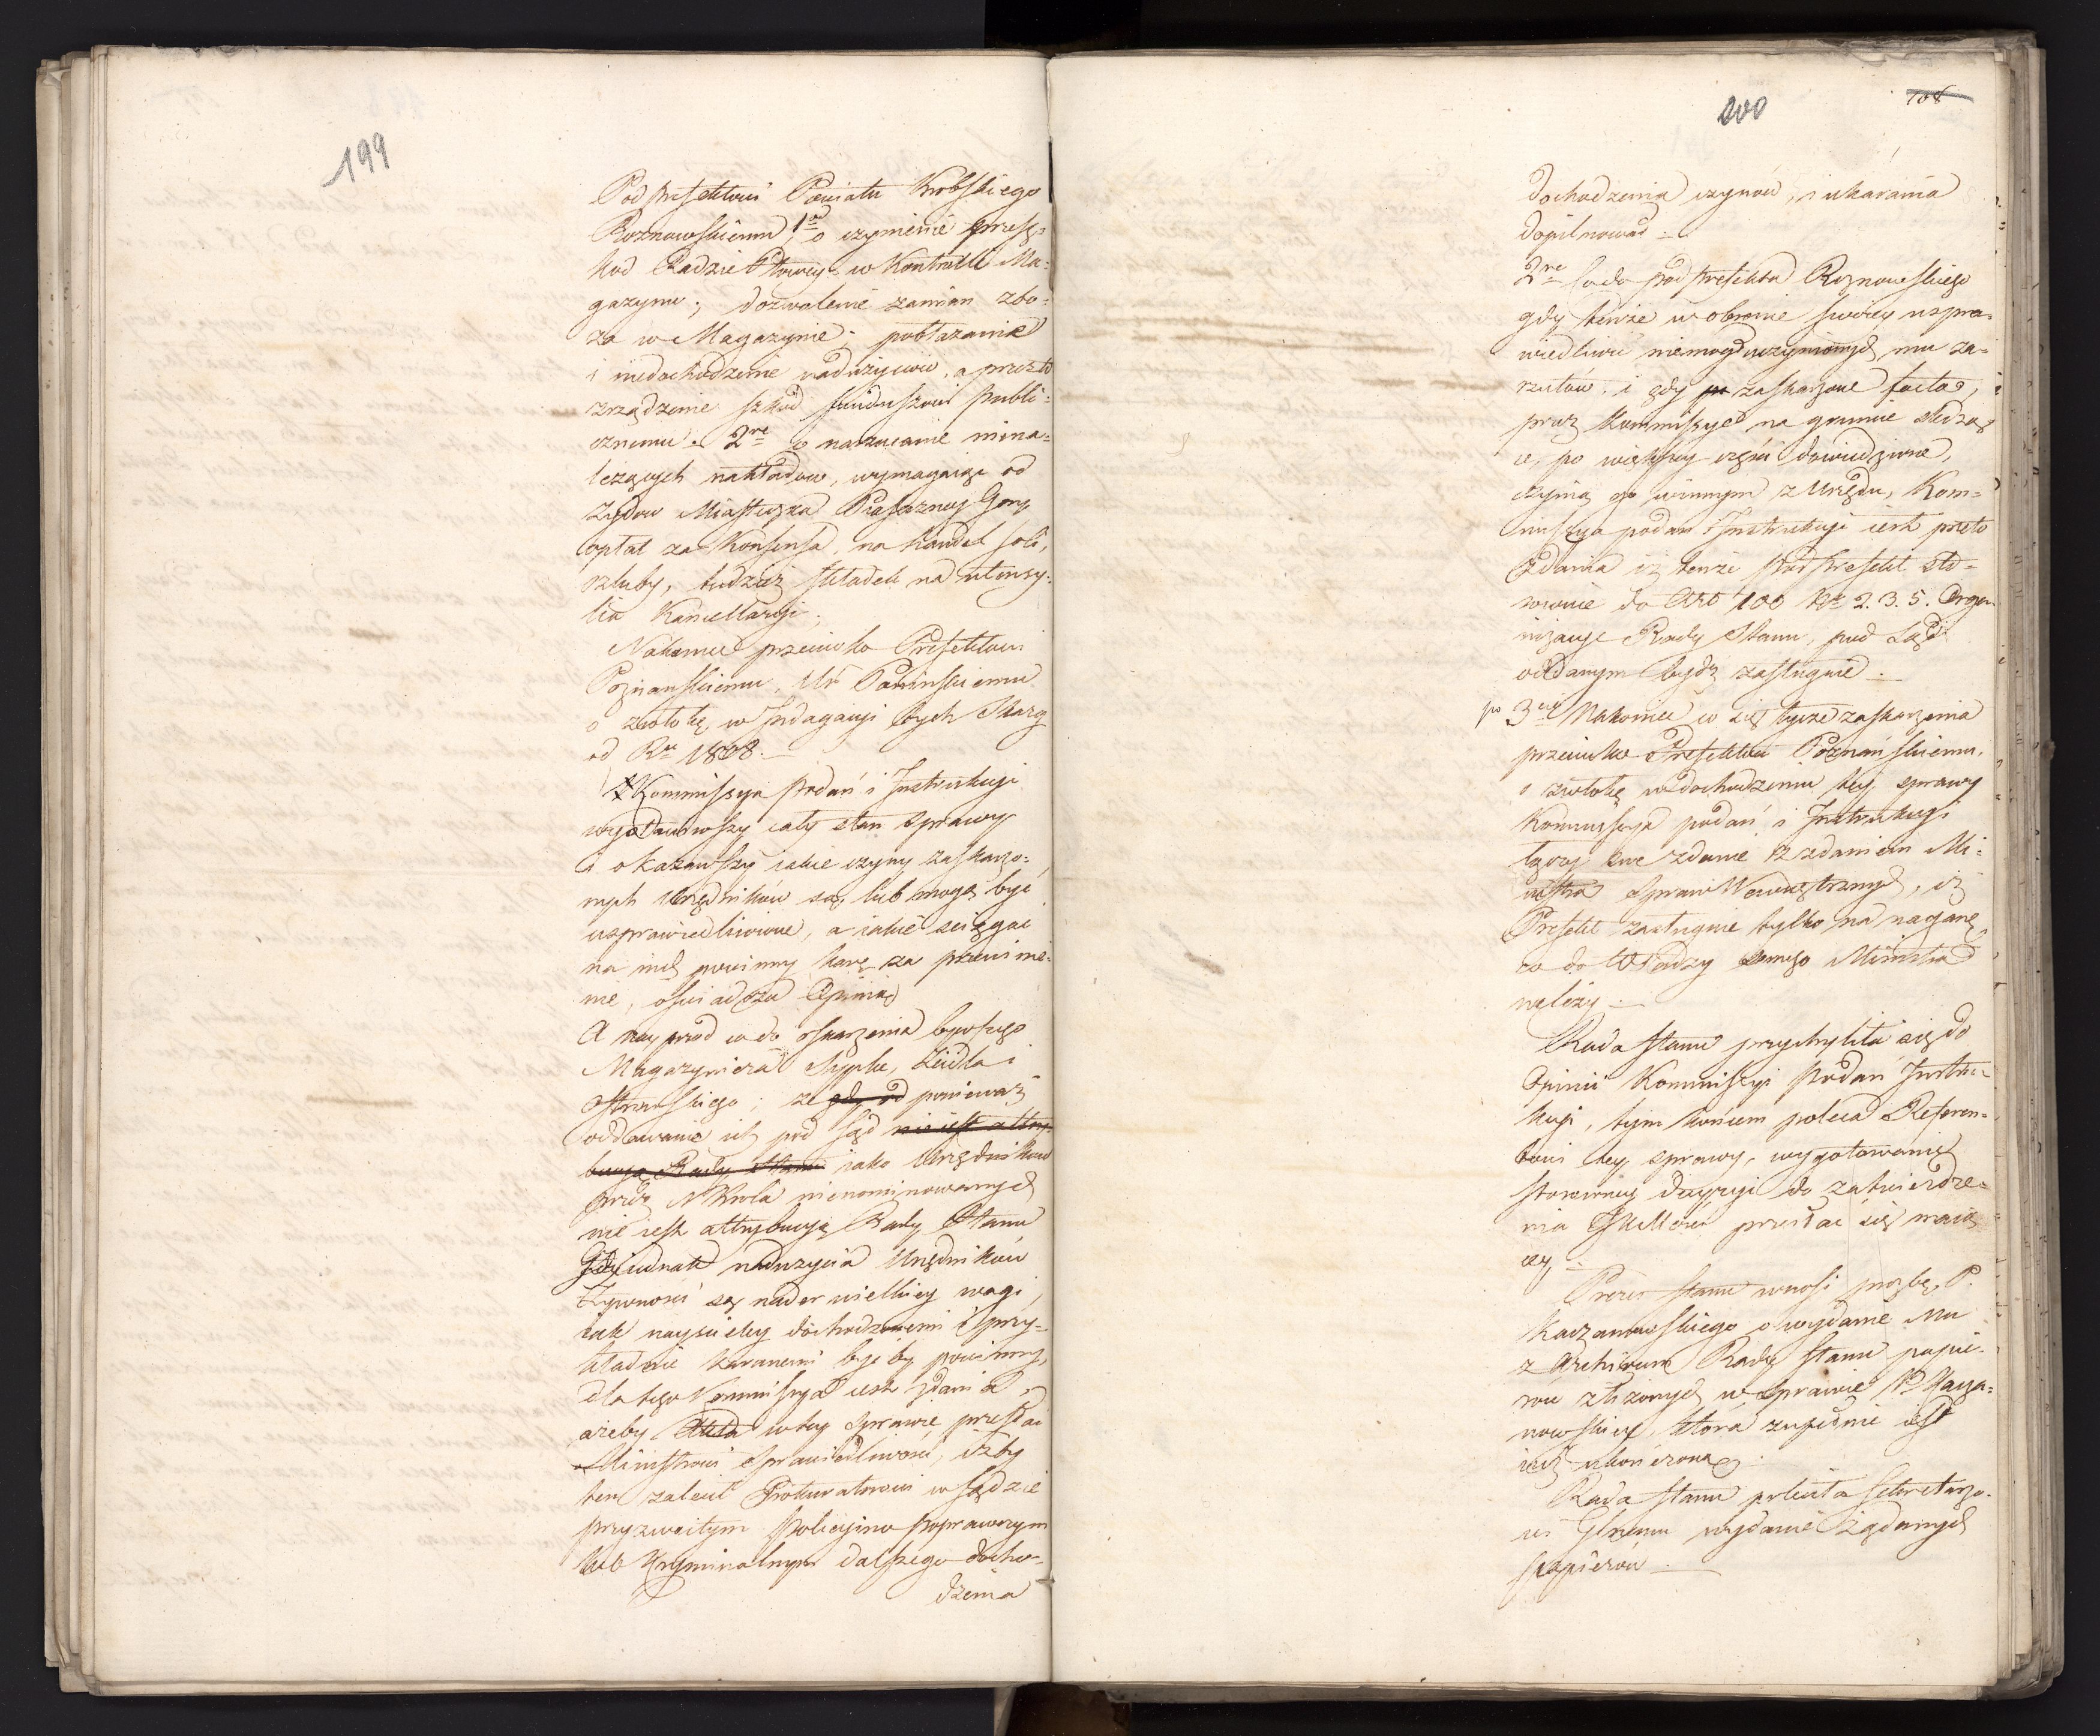 199
Podprefektowi Powiatu Krobskiego
Roznowskiemu, 1mo o czynienie przesz=
kod Radzie Ptowey w Kontrolli Ma=
gazynu; dozwolenie zamian zbo=
za w Magazynie; pobłazanie
i niedochodzenie nadużyciów, a przezto
zrządzenie szkod funduszowi Publi=
cznemu. 2re o narzucanie niena=
leżących nakładow, wymagaiąc od
Zydow Miasteczka Piasczney Gory
opłat za Konsensa, na handel soli,
szluby, tudzież składek na utensy=
lia Kancellaryi.
Nakoniec przeciwko Prefektowi
Poznanskiemu, Ur Poninskiemu
o zwłokę w Indagacyi tych Skarg
od Ru 1808.
Kommissya podań i Instrukcyi
wystawiwszy cały stan sprawy
i okazawszy iakie czyny zaskarżo=
nych Urzędników są, lub mogą być
usprawiedliwione, a iakie sciągać
na nich powinny karę za przewinie=
nie, oświadcza Opinią
A nayprzod co do oskarżenia bywszego
Magazyniera Szypke, Zeidla i
Ostrowskiego; ze gdy od ponieważ
oddawanie ich pod Sąd nie iest attry=
bucyą Rady Stanu iako Urzędników
przez NKrola nienominowanych
nie iest attrybucyą Rady Stanu
Gdy iednak nadużycia Urzędników
Żywności są nader wielkiey wagi,
iak nayściśley dochodzonemi i przy=
kładnie karanemi być by powinny,
dla tego Kommissya iest zdania,
ażeby Akta w tey sprawie przesłać
Ministrowi Sprawiedliwości, iżby
ten zalecił Prokuratorowi w Sądzie
przyzwoitym Policyino poprawczym
lub Kryminalnym dalszego docho=
dzenia
200
108
dochodzenia czynów, i ukarania
dopilnował.
2re Co do podprefekta Roznowskiego
gdy tenże w obronie swoiey uspra=
wiedliwić niemógł uczynionych mu za=
rzutów. i gdy zaskarżone facta,
przez Kommissye na gruncie śledzą=
ce, po większey części dowiedzione,
czynią go winnym z Urzędu, Kom=
missya podań i Instrukcyi iest przeto
zdania iż tenże Podprefekt sto=
sownie do Art 100 Nr 2. 3. 5. Orga=
nizacyi Rady Stanu, pod Sąd
oddanym bydź zasługuie.
po 3cie Nakoniec co się tycze zaskarżenia
przeciwko Prefektowi Poznańskiemu.
o zwłokę w dochodzeniu tey sprawy
Kommissya podań i Instrukcyi
łączy swe zdanie z zdaniem Mi=
nistra Spraw Wewnętrznych, iż
Prefekt zasługuie tylko na naganę
co do Władzy samego Ministra
należy.
Rada Stanu przychyliła się do
Opinii Kommissyi Podań Instru=
kcyi, tym końcem poleca Referen=
towi tey sprawy, wygotowanie
stosowney decyzyi do zatwierdze=
nia JKMości przesłać się maią=
cey.
Prezes Stanu wnosi prozbę P.
Kaczanowskiego o wydanie Mu
z Archiwum Rady Stanu papie=
row złożonych w Sprawie P. Kacza=
nowskiey, ktora zupełnie iest
iuż ukończona.
Rada Stanu poleciła Sekretarzo=
wi Glnemu wydanie żądanych
papierów.